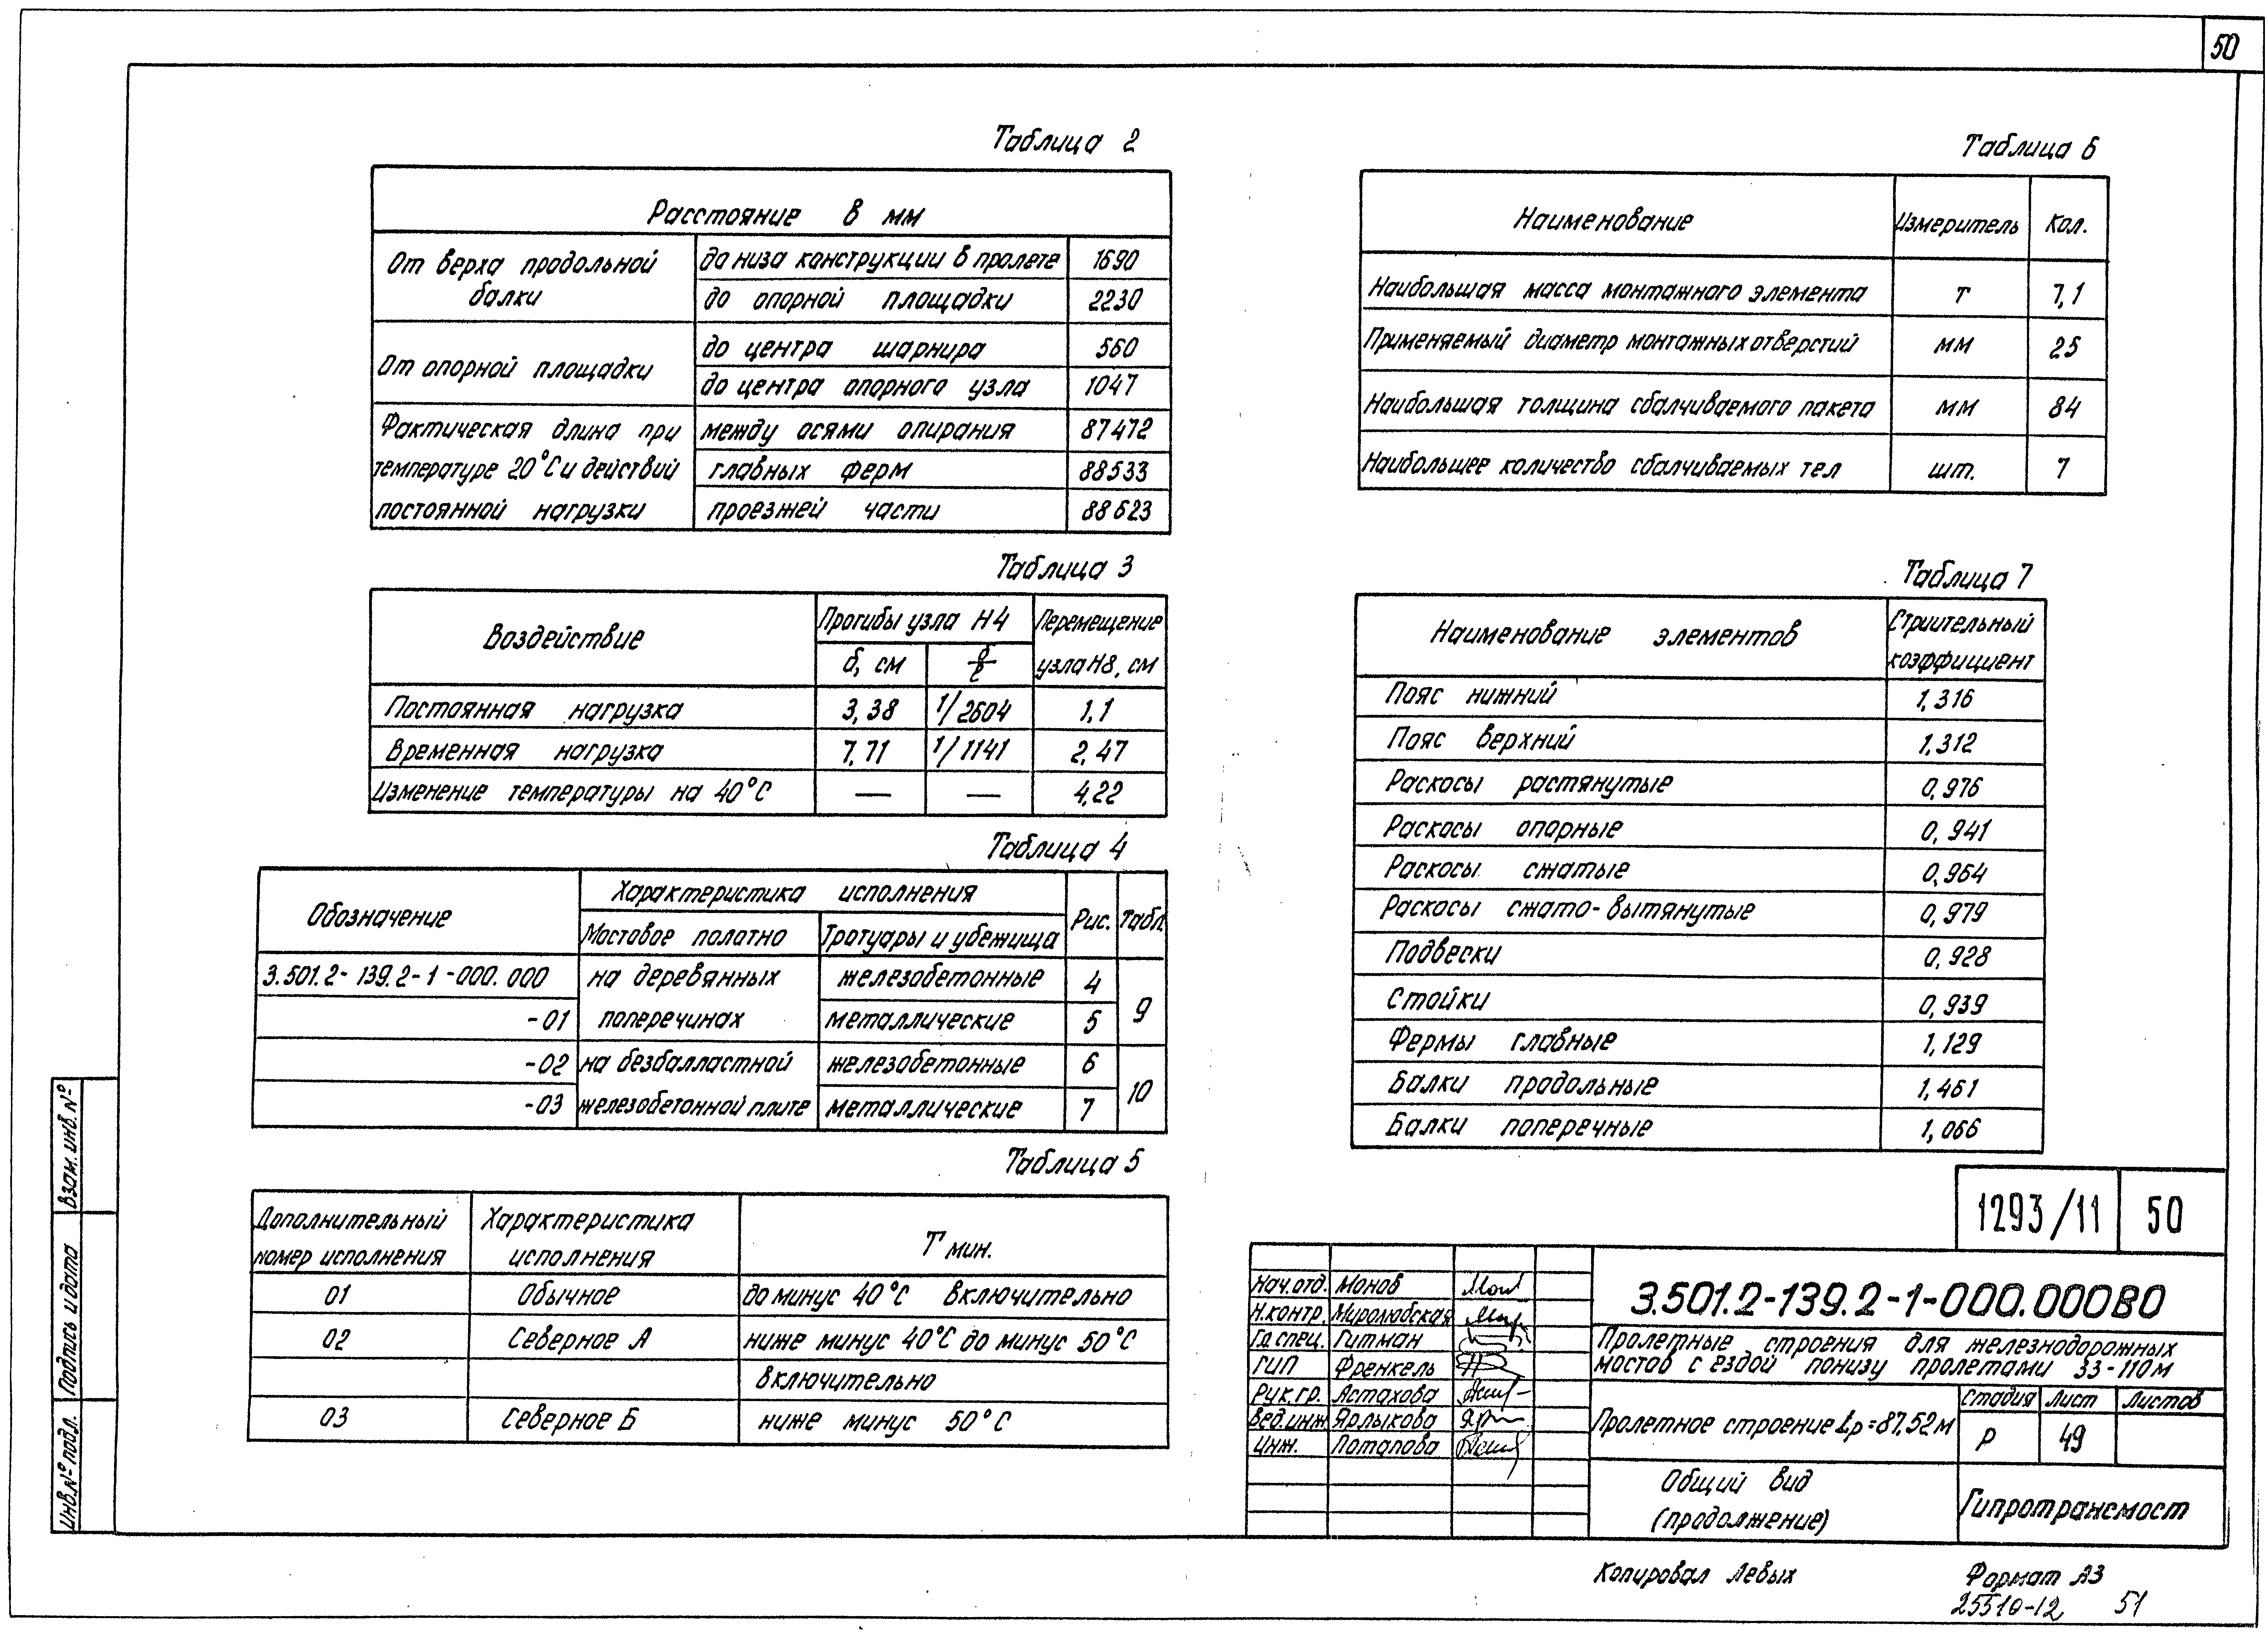 50
Таблица 2
Расстояние в мм
От верха продольной балки
до низа конструкции в пролете 1690
до опорной площадки 2230
От опорной площадки
до центра шарнира 560
до центра опорного узла 1047
Фактическая длина при между осями опирания 87472
температуре 20°С и действий главных ферм 88533
постоянной нагрузки проезжей части 88623
Таблица 3
Воздействие Прогибы узла Н4 Перемещение
δ, см δ/ℓ узла Н8, см
Постоянная нагрузка 3,38 1/2604 1,1
Временная нагрузка 7,71 1/1141 2,47
Изменение температуры на 40°С — — 4,22
Таблица 4
Обозначение Характеристика исполнения Рис. Табл.
Мостовое полотно Тротуары и убежища
3.501.2-139.2-1-000.000 на деревянных железобетонные 4 9
-01 поперечинах металлические 5
-02 на безбалластной железобетонные 6 10
-03 железобетонной плите металлические 7
Таблица 5
Дополнительный Характеристика Т мин.
номер исполнения исполнения
01 Обычное до минус 40°С включительно
02 Северное А ниже минус 40°С до минус 50°С
включительно
03 Северное Б ниже минус 50°С
Таблица 6
Наименование Измеритель Кол.
Наибольшая масса монтажного элемента т 7,1
Применяемый диаметр монтажных отверстий мм 25
Наибольшая толщина сбалчиваемого пакета мм 84
Наибольшее количество сбалчиваемых тел шт. 7
Таблица 7
Наименование элементов Стриительный
коэффициент
Пояс нижний 1,316
Пояс верхний 1,312
Раскосы растянутые 0,976
Раскосы опорные 0,941
Раскосы сжатые 0,964
Раскосы сжато-вытянутые 0,979
Подвески 0,928
Стойки 0,939
Фермы главные 1,129
Балки продольные 1,461
Балки поперечные 1,066
1293/11 50
3.501.2-139.2-1-000.000ВО
Нач.отд. Монов
Н.контр. Миролюбская
Гл.спец. Гитман
ГИП Френкель
Рук.гр. Астахова
Вед.инж Ярлыкова
Инж. Потапова
Пролетные строения для железнодорожных
мостов с ездой понизу пролетами 33-110м
Пролетное строение Lр=87,52м
Стадия Лист Листов
Р 49
Общий вид
(продолжение)
Гипротрансмост
Взам. инв. №
Подпись и дата
Инв.№ подл.
Копировал Левых Формат А3
25510-12 51